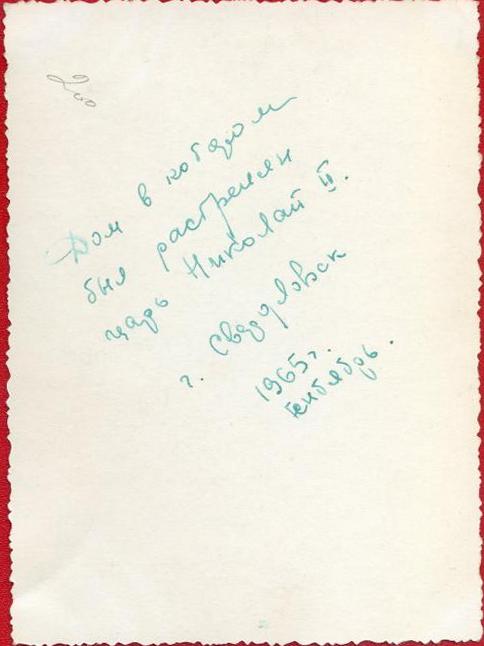 200
Дом в котором
был растрелян
царь Николай II.
г. Свердловск
1965 г.
Сентябрь.